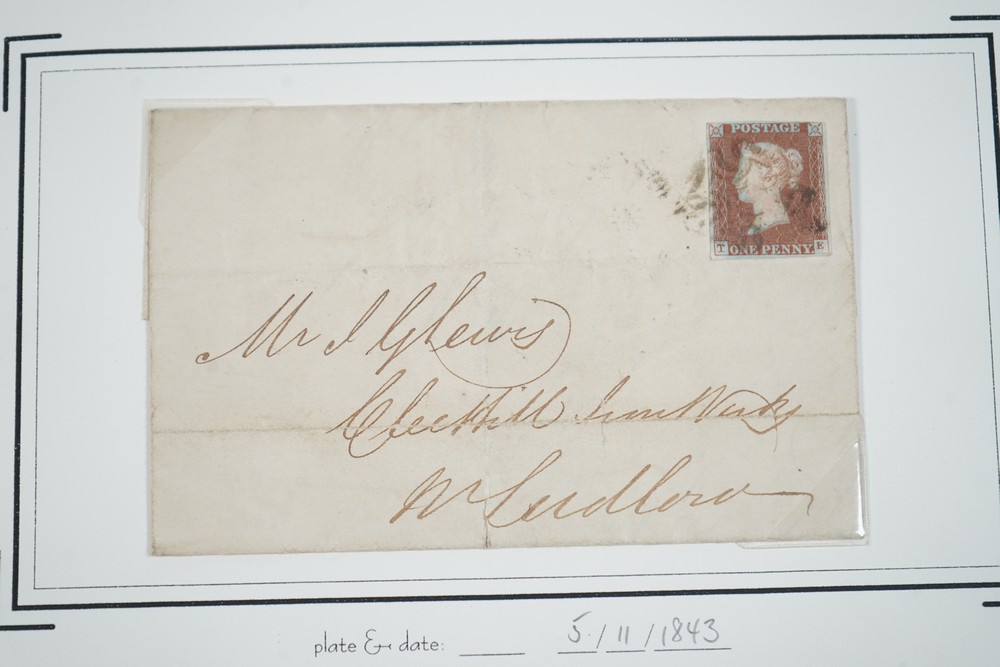 POSTAGE
T ONE PENNY. E
Mr J G Lewis
Clee Hill Iron Works
Nr Ludlow
plate & date: 5 / 11 / 1843